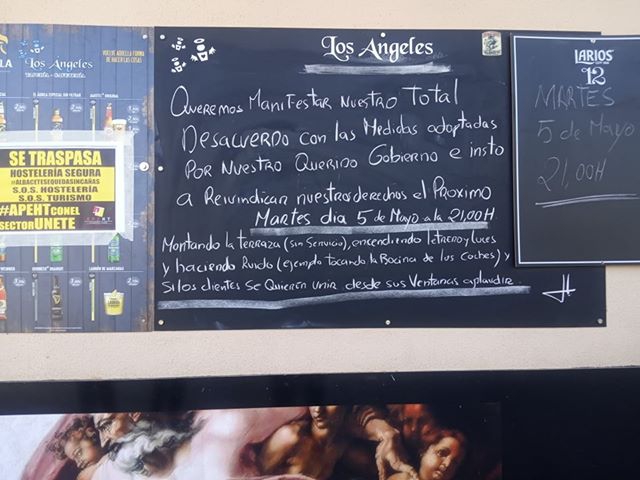 Los Angeles
VUELVE AQUELLA FORMA
DE HACER LAS COSAS
SE TRASPASA
HOSTELERÍA SEGURA
#ALBACETESEQUEDASINCAÑAS
S.O.S. HOSTELERÍA
S.O.S. TURISMO
#APEHTCONEL
SECTORÚNETE
Los Angeles
Queremos Manifestar Nuestro Total
Desacuerdo con las Medidas adoptadas
Por Nuestro Querido Gobierno e insto
a Reivindicar nuestros derechos el Proximo
Martes dia 5 de Mayo a la 21,00H
Montando la terraza (sin Servicio), encendiendo letreros y luces
y haciendo Ruido (ejemplo tocando la Bocina de los Coches) y
Si los clientes se Quieren unir desde sus Ventanas aplaudir.
LARIOS
12
MARTES
5 de Mayo
21,00H